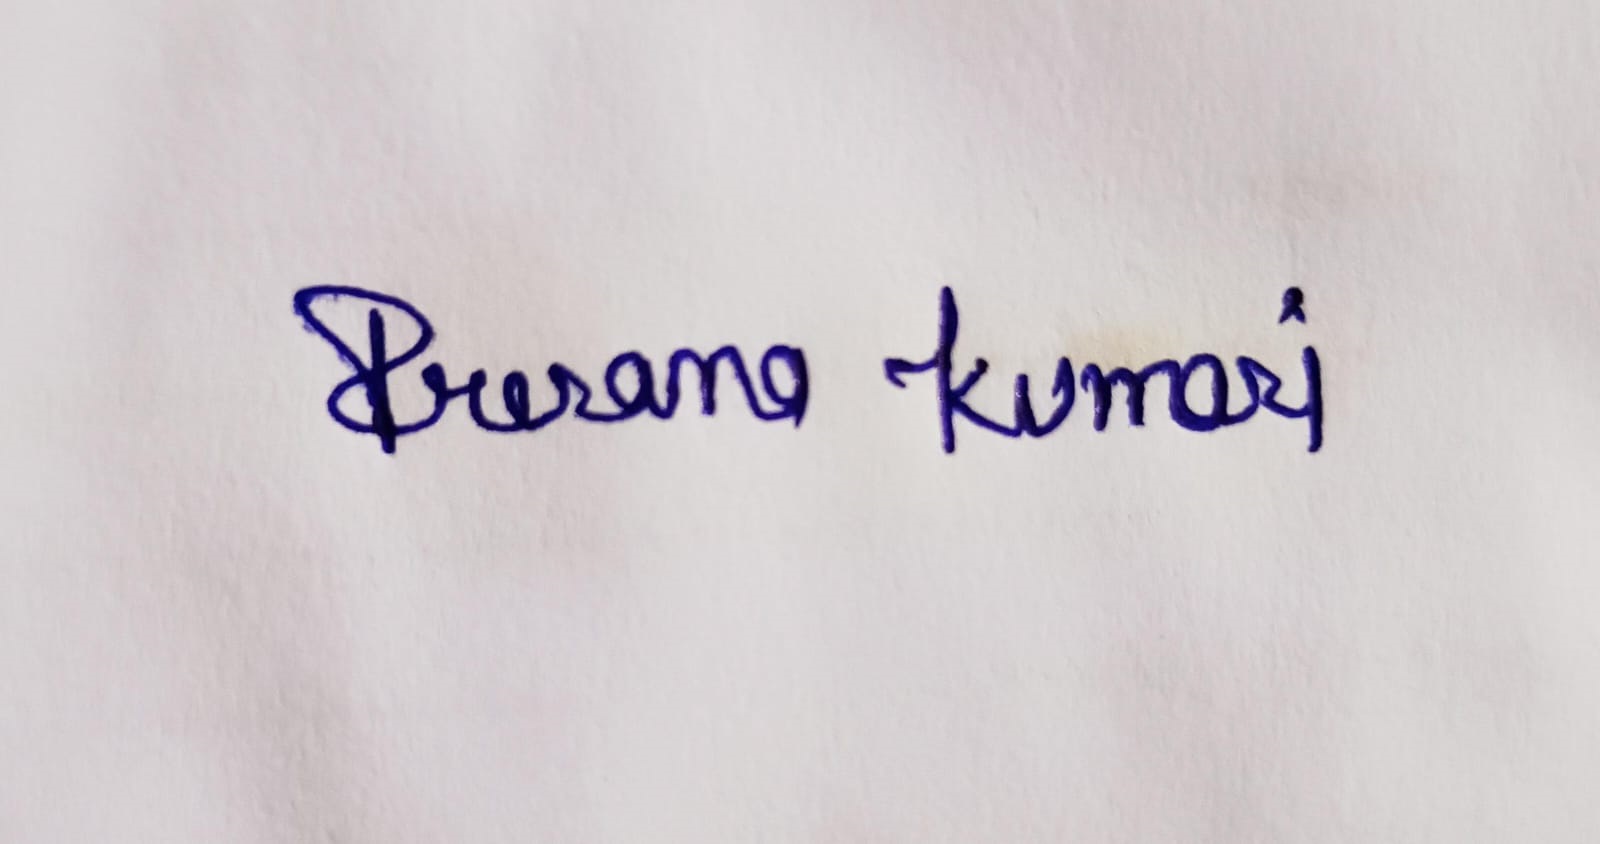 Prerana kumari